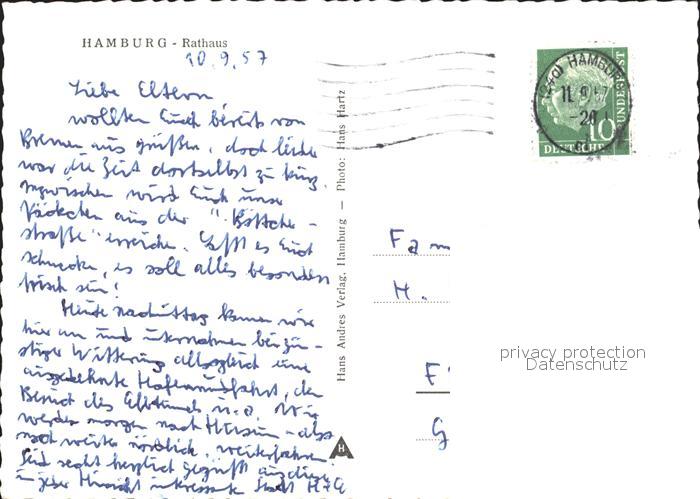 HAMBURG - Rathaus
10.9.57
Liebe Eltern
wollten Euch bereits von
Bremen aus grüßen, doch leider
war die Zeit dortselbst zu kurz.
Inzwischen wird Euch unser
Päckchen aus der "Böttcher-
straße" erreichen. Laßt es Euch
schmecken, es soll alles besonders
frisch sein!
Heute nachmittag kamen wir
hier an und unternahmen bei gün-
stiger Witterung allsogleich eine
ausgedehnte Hafenrundfahrt, den
Besuch des Elbtunnels u.a. Wir
werden morgen nach Husum - also
noch weiter nördlich, weiterfahren.
Seid recht herzlich gegrüßt aus dieser
in jeder Hinsicht interessanten Stadt
Hans Andres Verlag, Hamburg — Photo: Hans Hartz
HAMBURG
11.9.57
-20
10
DEUTSCHE
BUNDESPOST
Fam
H.
F
G
privacy protection
Datenschutz
A
H